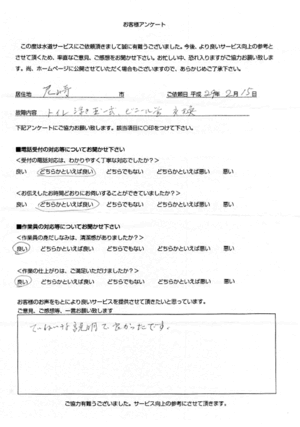 お客様アンケート
この度は水道サービスにご依頼頂きまして誠に有難うございました。今後、より良いサービス向上の参考と
させて頂くため、率直なご意見、ご感想をお聞かせ下さい。お忙しい中、恐れ入りますがご協力お願い致しま
す。尚、ホームページに公開させていただく場合もございますので、あらかじめご了承下さい。
居住地 尼崎 市 ご依頼日 平成 29年 2月 15日
故障内容 トイレ 交換
下記アンケートにご協力お願い致します。該当項目に〇印をつけて下さい。
■電話受付の対応等についてお聞かせ下さい
<受付の電話対応は、わかりやすく丁寧な対応でしたか?>
良い どちらかといえば良い どちらでもない どちらかといえば悪い 悪い
<お伝えしたお時間どおりにお伺いすることができていましたか?>
良い どちらかといえば良い どちらでもない どちらかといえば悪い 悪い
■作業員の対応等についてお聞かせ下さい
<作業員の身だしなみは、清潔感がありましたか?>
良い どちらかといえば良い どちらでもない どちらかといえば悪い 悪い
<作業の仕上がりは、ご満足いただけましたか?>
良い どちらかといえば良い どちらでもない どちらかといえば悪い 悪い
お客様のお声をもとにより良いサービスを提供させて頂きたいと思っています。
ご意見、ご感想等、一言お願い致します
ていねいな説明で良かったです。
ご協力有難うございました。サービス向上の参考にさせて頂きます。